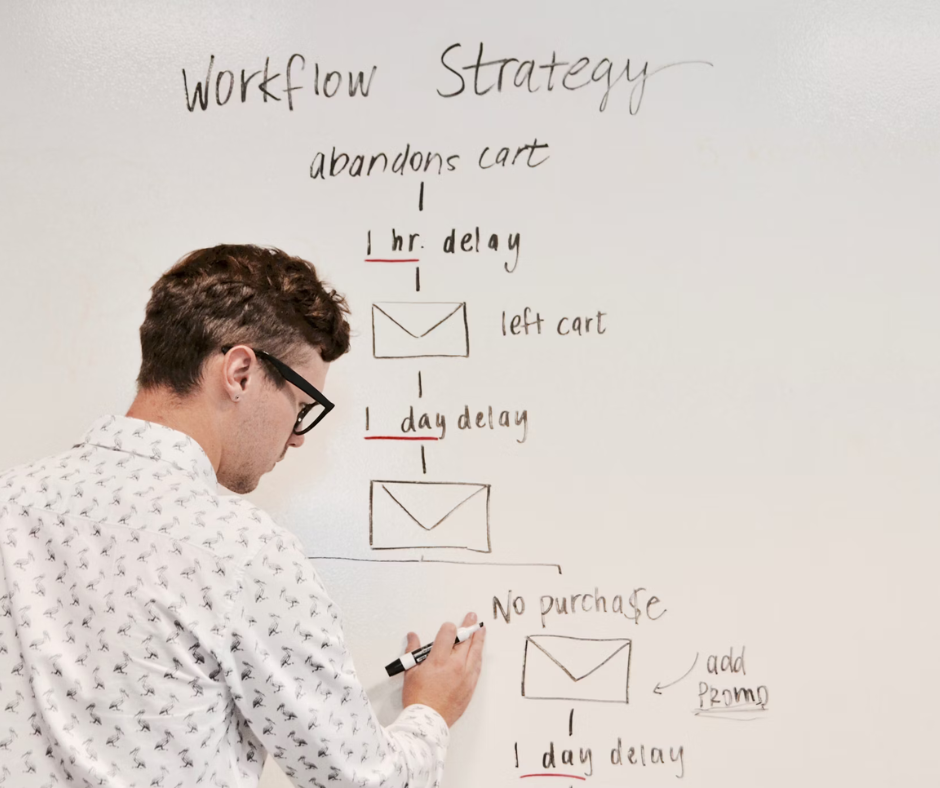 Workflow Strategy
abandons cart
1 hr. delay
left cart
1 day delay
No purcha$e
add
Promo
1 day delay